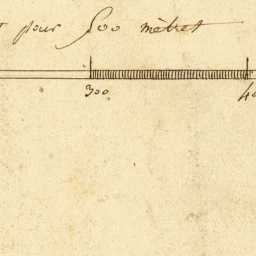 pour 500 mètres
300